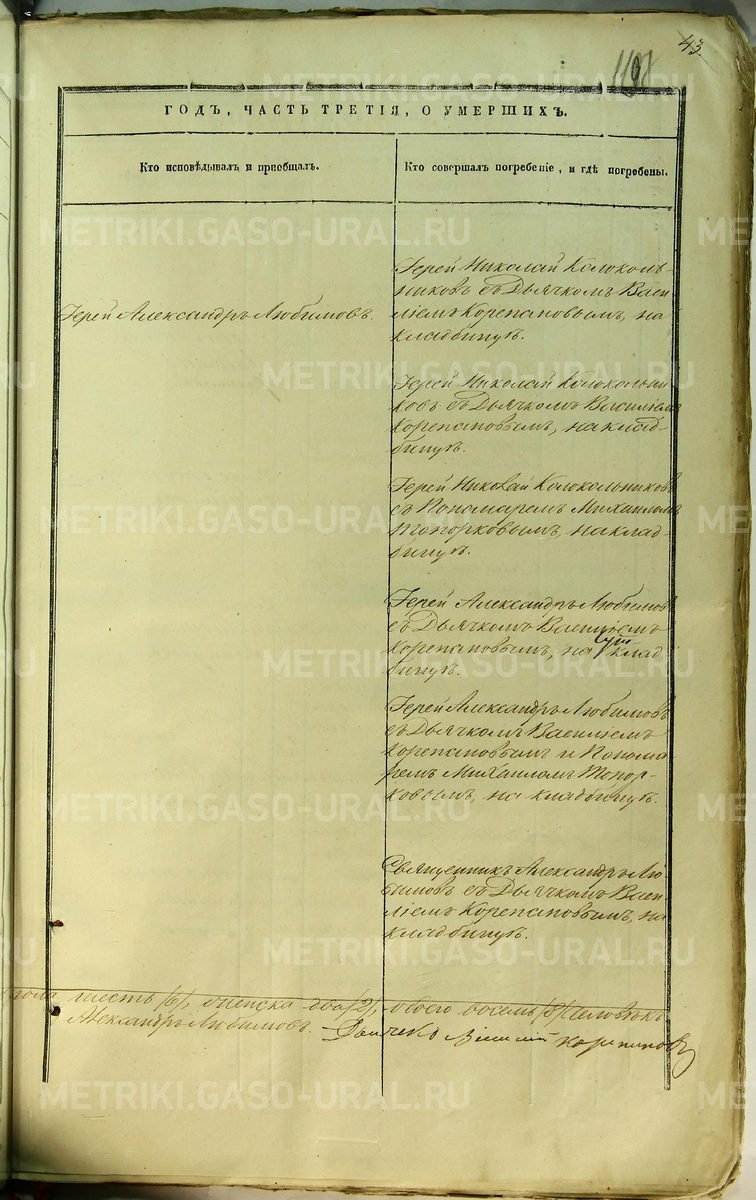 43
1198
ГОДЪ, ЧАСТЬ ТРЕТІЯ, О УМЕРШИХЪ.
Кто исповѣдывалъ и пріобщалъ.
Кто совершалъ погребеніе, и гдѣ погребены.
Іерей Александръ Любимовъ.
Іерей Николай Колоколь-
никовъ съ Дьячкомъ Васи
ліемъ Корепановымъ, на
кладбищѣ.
Іерей Николай Колокольни
ковъ съ Дьячкомъ Василіемъ
Корепановымъ, на клад-
бищѣ.
Іерей Николай Колокольниковъ
съ Пономаремъ Михаиломъ
Топорковымъ, на клад-
бищѣ.
Іерей Александръ Любимовъ
съ Дьячкомъ Василіемъ
Корепановымъ, на клад
бищѣ.
Іерей Александръ Любимовъ
съ Дьячкомъ Василіемъ
Корепановымъ и Понома
ремъ Михаиломъ Топор-
ковымъ, на кладбищѣ.
Священникъ Александръ Лю
бимовъ съ Дьячкомъ Васи
ліемъ Корепановымъ, на
кладбищѣ.
пола шесть /6/, женска два /2/, обоего восемь /8/ человѣкъ
Александръ Любимовъ. Дьячекъ Василий Корепановъ
METRIKI.GASO-URAL.RU